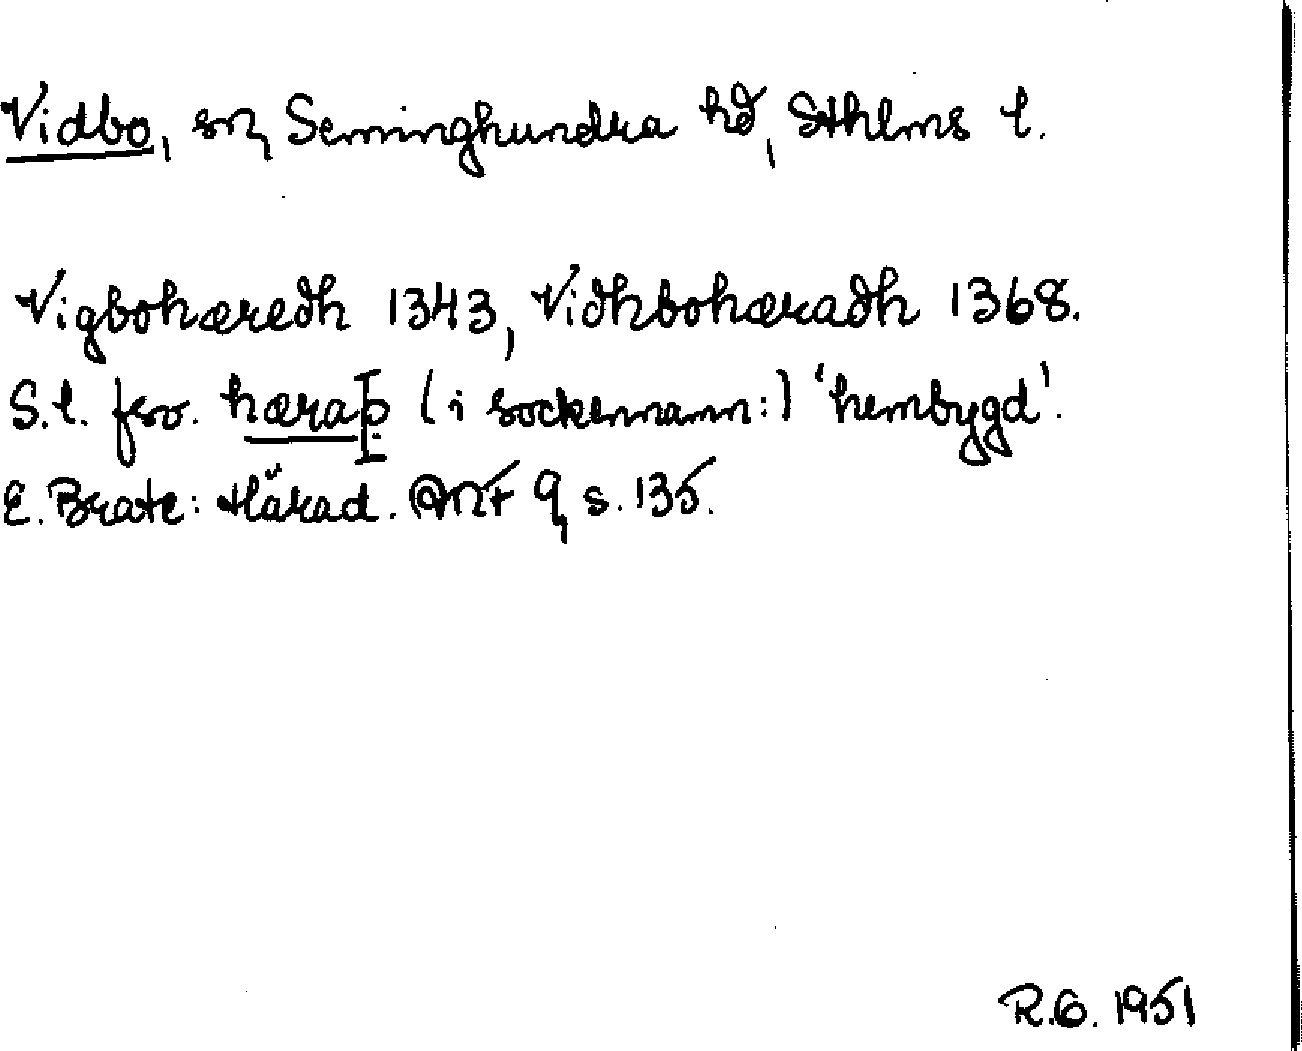 Vidbo, sn, Seminghundra hd, Sthlms l.
Vigbohæredh 1343, Vidhbohæradh 1368.
S.l. fsv. hæraþ (i sockennamn:) 'hembygd'.
E. Brate: Härad. ANF 9, s. 135.
R.G. 1951